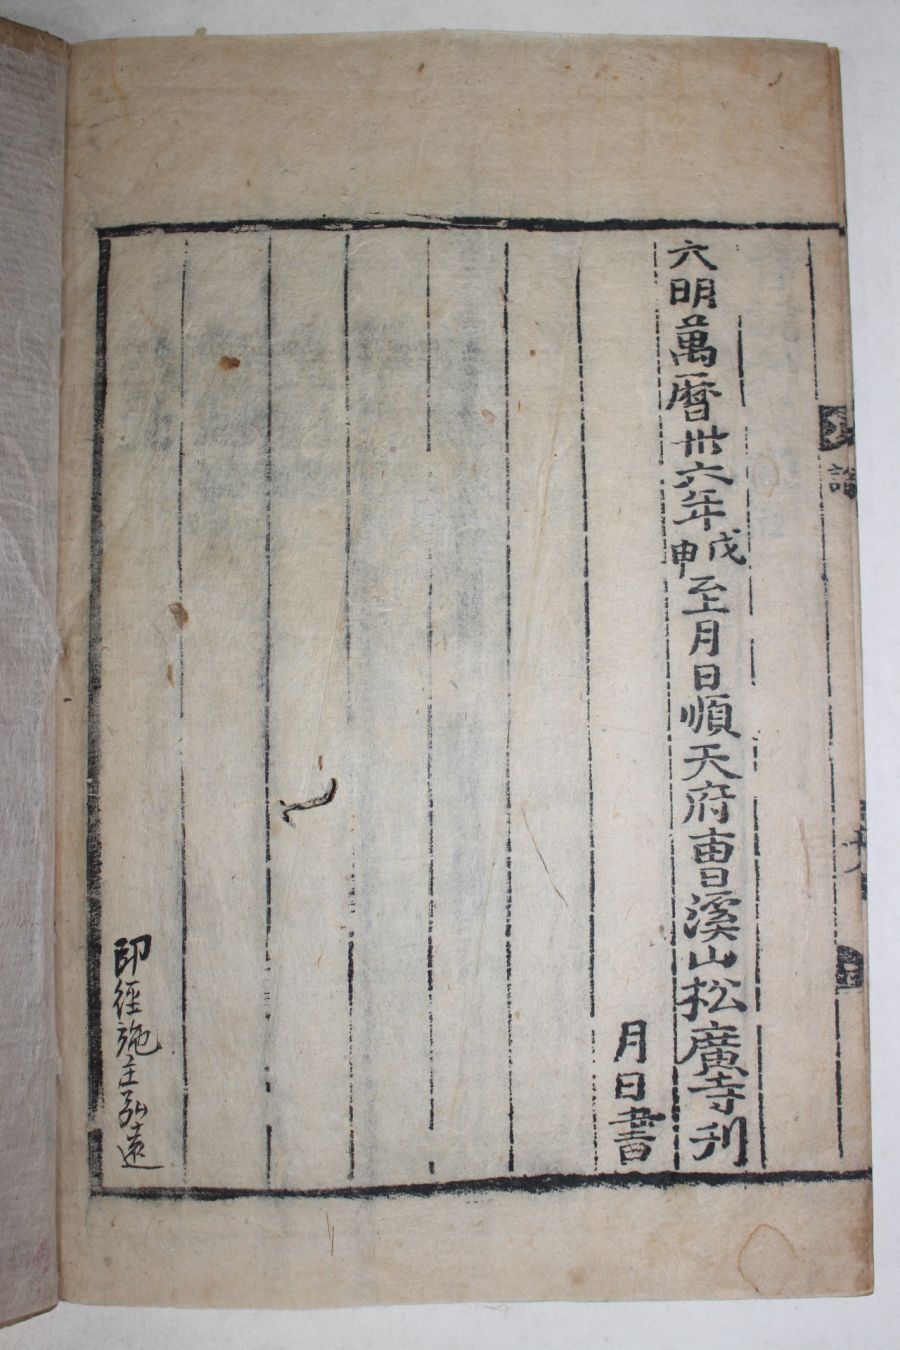 六明萬曆卅六年戊申至月日順天府曺溪山松廣寺刊
月日書
印經施主弘遠